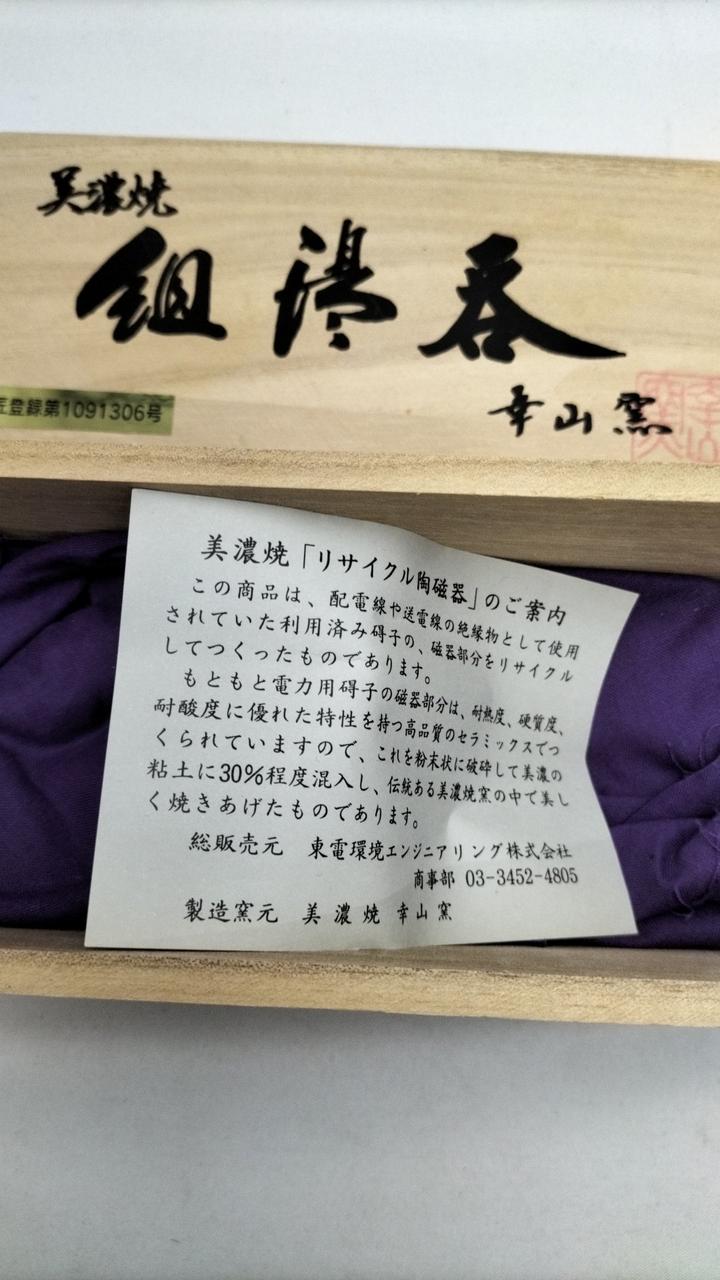 美濃焼
組湯呑
匠登録第1091306号
幸山窯
美濃焼「リサイクル陶磁器」のご案内
この商品は、配電線や送電線の絶縁物として使用
されていた利用済み碍子の、磁器部分をリサイクル
してつくったものであります。
もともと電力用碍子の磁器部分は、耐熱度、硬質度、
耐酸度に優れた特性を持つ高品質のセラミックスでつ
くられていますので、これを粉末状に破砕して美濃の
粘土に30%程度混入し、伝統ある美濃焼窯の中で美し
く焼きあげたものであります。
総販売元 東電環境エンジニアリング株式会社
商事部 03-3452-4805
製造窯元 美濃焼 幸山窯